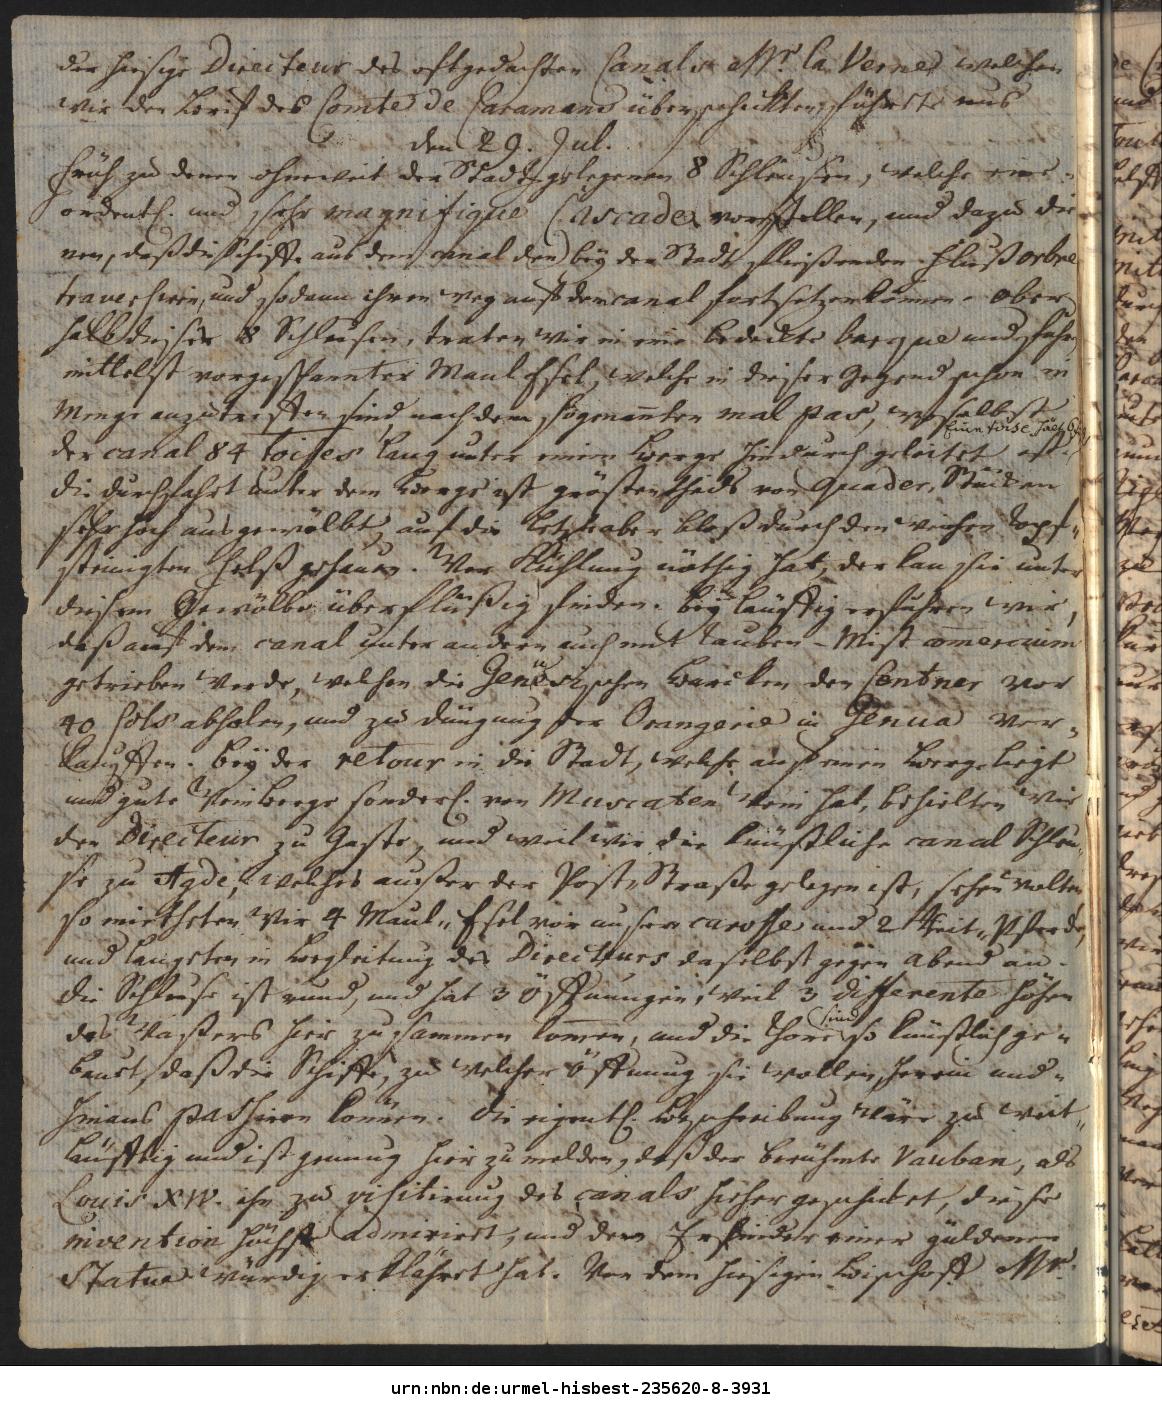 der hiesige Directeur des oftgedachten Canals Mr. la Verne, welchen
wir den Brief des Comte de Caraman überschickten, führete uns
den 29. Jul.
früh zu denen ohnweit der Stadt gelegenen 8 Schleusen, welche eine
ordentl. und sehr magnifique Cascade vorstellen, und dazu die
nen, daß die Schiffe aus dem canal den bey der Stadt fließenden Fluß orbre
traversiren, und sodann ihren weg auf dem canal fortsetzen können. Ober
halb dieser 8 Schleusen, traten wir in eine bedeckte barque und fuhren
mittelst vorgespannter Maul Esel, welche in dieser Gegend schon in
Menge anzutreffen sind, nach dem sogenannten mal pas, woselbst
eine toise hält 6
der canal 84 toises lang unter einem Berge hindurch geleitet ist.
die durchfahrt unter dem Berge ist gröstentheils von quader Stücken
sehr hoch ausgewölbt, auf die letzt aber bloß durch den weichen topf„
steinigten Felß gehauen. Wer Kühlung nöthig hat, der kan sie unter
diesem Gewölbe überflüßig finden. beyläuffig erfuhren wir,
daß auf dem canal unter andern auch mit tauben-Mist comercium
getrieben werde, welchen die Genuesischen Barcken den Centner vor
40 sols abholen, und zu düngung der Orangerie in Genua ver„
kauffen. bey der retour in die Stadt, welche auf einem Berge liegt
und gute Weinberge sonderl. von Muscaten Wein hat, behielten wir
den Directeur zu Gaste, und weil wir die künstliche canal Schleu„
se zu Agde, welches außer der Post Straße gelegen ist, sehen wolten
so mietheten wir 4 Maul„Esel vor unsere carosse und 2 Reit„Pferde,
und langten in Begleitung des Directeurs daselbst gegen abend an.
die Schleuse ist rund, und hat 3 öffnungen, weil 3 differente höhen
des Waßers hier zusammen komen, und die thore sind so künstlich ge„
baut, daß die Schiffe, zu welcher öffnung sie wollen, herein und„
hinaus passiren können. die eigentl. beschreibung wäre zu weit„
läufftig und ist genung hier zu melden, daß der berühmte Vauban, als
Louis XIV. ihn zu visitirung des canals hieher geschicket, diese
invention höchst admiriret, und den Erfinder einer güldenen
Statue würdig erklähret hat. Von dem hiesigen Bischoff Mr.
urn:nbn:de:urmel-hisbest-235620-8-3931